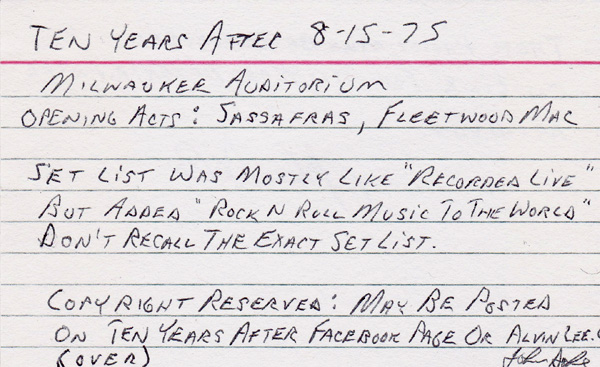 TEN YEARS AFTER 8-15-75
MILWAUKEE AUDITORIUM
OPENING ACTS: SASSAFRAS, FLEETWOOD MAC
SET LIST WAS MOSTLY LIKE "RECORDED LIVE"
BUT ADDED "ROCK N ROLL MUSIC TO THE WORLD"
DON'T RECALL THE EXACT SET LIST.
COPYRIGHT RESERVED: MAY BE POSTED
ON TEN YEARS AFTER FACEBOOK PAGE OR ALVIN LEE.
(OVER) John